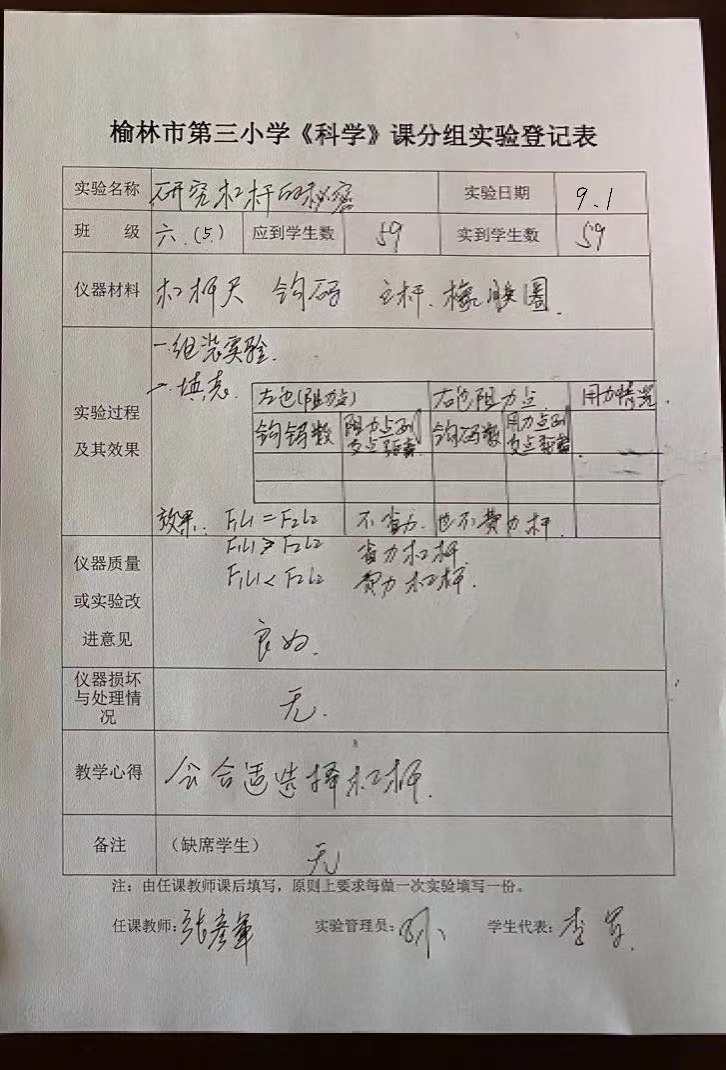 榆林市第三小学《科学》课分组实验登记表
实验名称 研究杠杆的秘密 实验日期 9.1
班 级 六.(5) 应到学生数 59 实到学生数 59
仪器材料 杠杆尺 钩码 支杆.橡胶圈.
实验过程
及其效果
一.组装实验.
二.填表.
左边(阻力点) 右边阻力点 用力情况.
钩码数 阻力点到支点距离 钩码数 用力点到支点距离
效果: F₁L₁=F₂L₂ 不省力.也不费力杆.
F₁L₁>F₂L₂ 省力杠杆.
F₁L₁<F₂L₂ 费力杠杆.
仪器质量
或实验改
进意见
良好.
仪器损坏
与处理情
况
无.
教学心得 会合适选择杠杆.
备注 (缺席学生) 无
注:由任课教师课后填写,原则上要求每做一次实验填写一份。
任课教师:张彦军 实验管理员: 学生代表:李